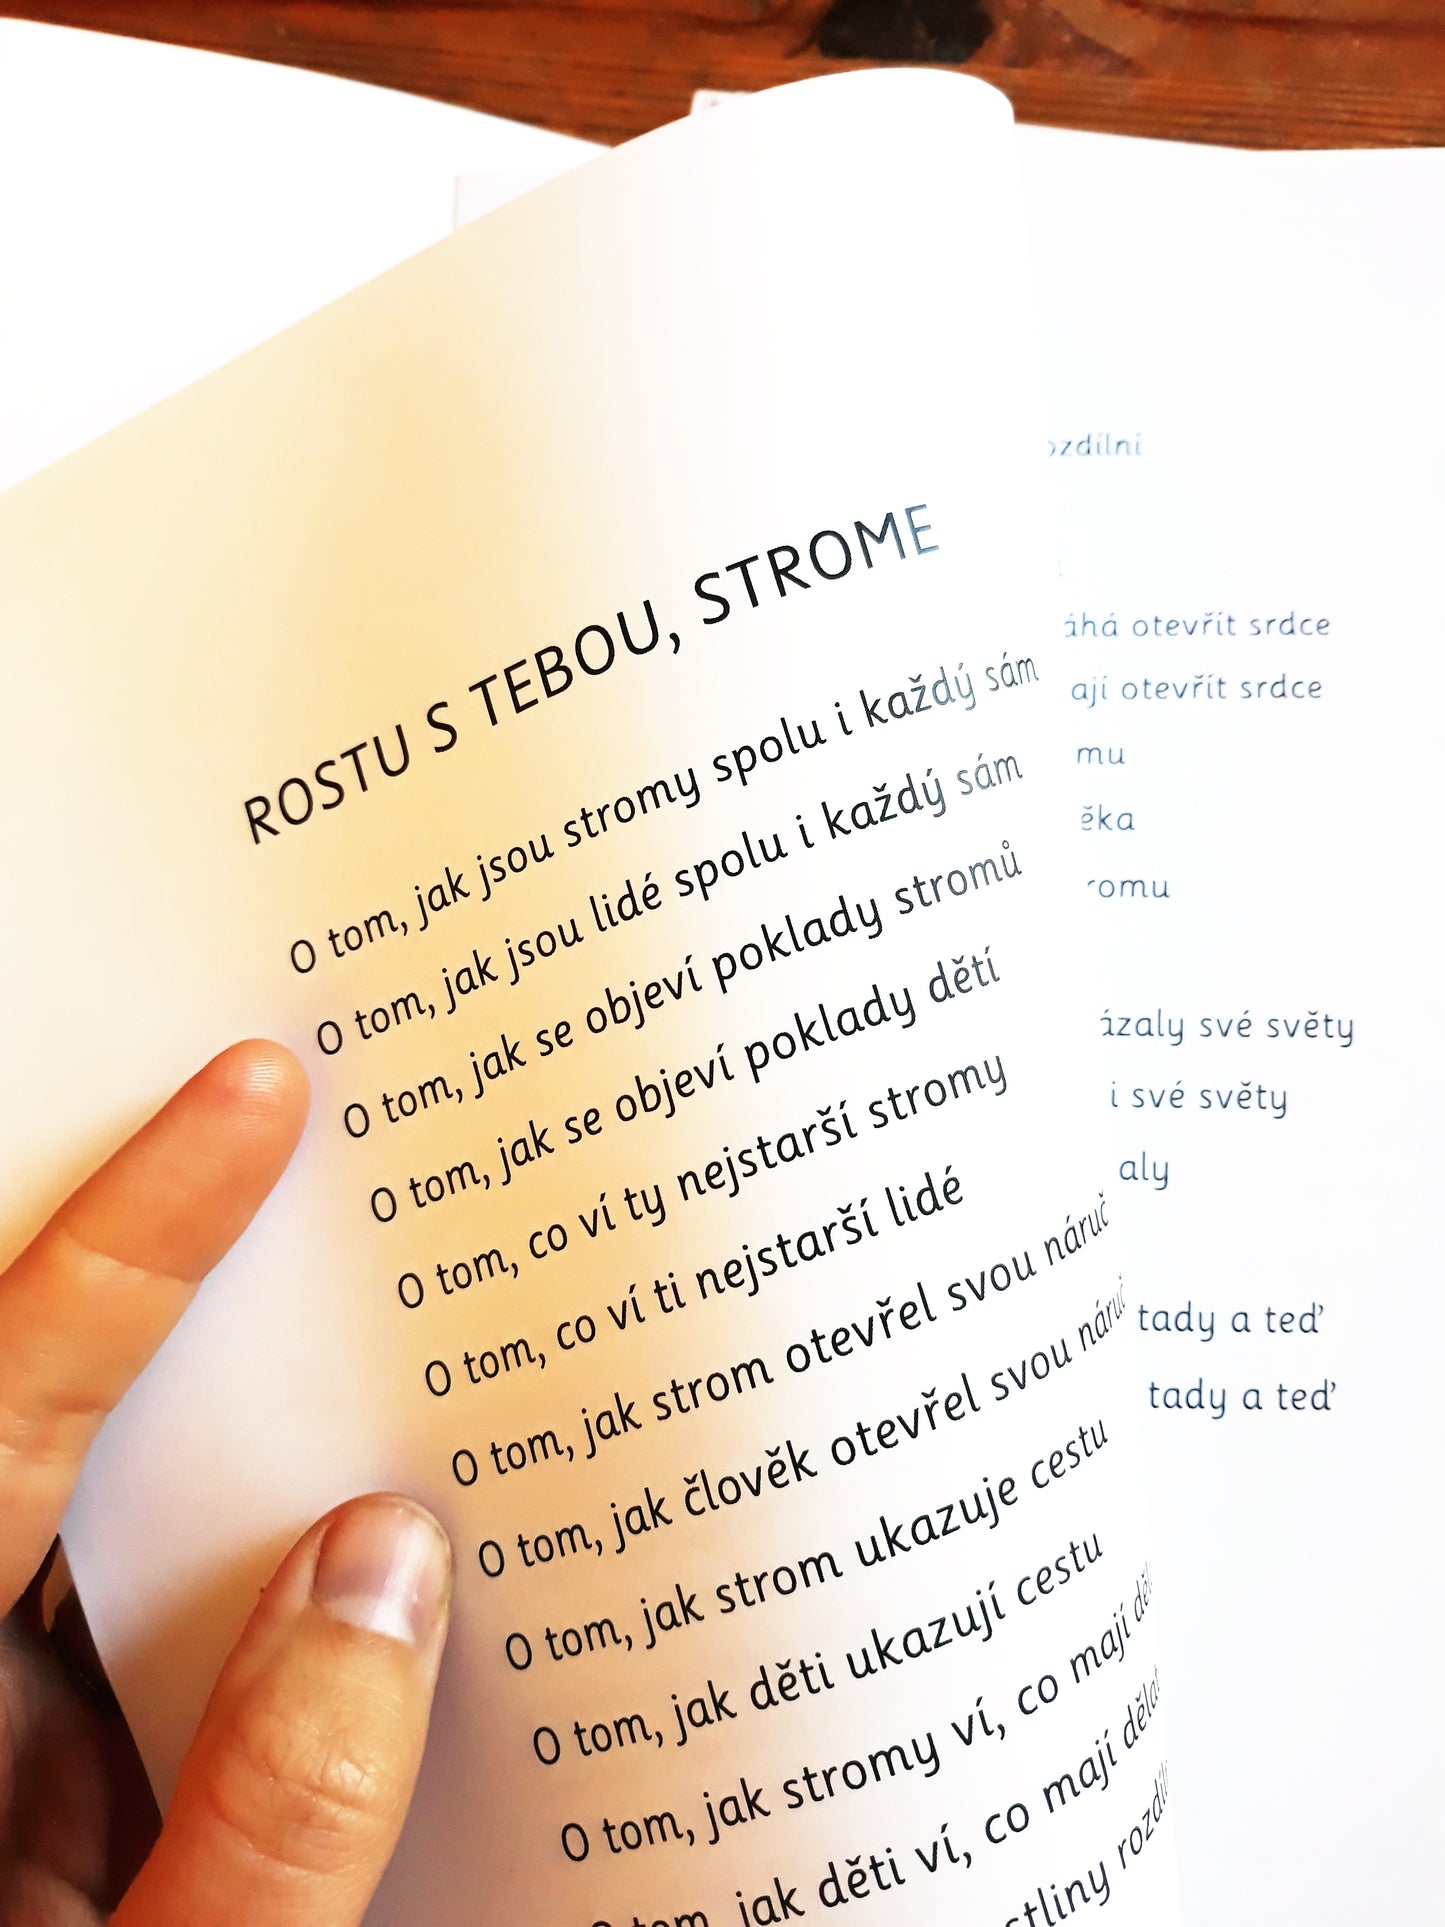 ROSTU S TEBOU, STROME
O tom, jak jsou stromy spolu i každý sám
O tom, jak jsou lidé spolu i každý sám
O tom, jak se objeví poklady stromů
O tom, jak se objeví poklady dětí
O tom, co ví ty nejstarší stromy
O tom, co ví ti nejstarší lidé
O tom, jak strom otevřel svou náruč
O tom, jak člověk otevřel svou náruč
O tom, jak strom ukazuje cestu
O tom, jak děti ukazují cestu
O tom, jak stromy ví, co mají
O tom, jak děti ví, co mají dělat
otevřít srdce
otevřít srdce
své světy
své světy
tady a teď
tady a teď